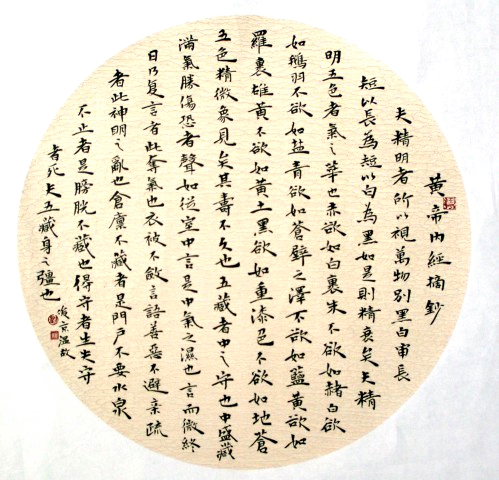 黄帝内經摘鈔
夫精明者所以視萬物别黑白审長
短以長為短以白為黑如是則精衰矣夫精
明五色者氣之華也赤欲如白裹朱不欲如赭白欲
如鵝羽不欲如盐青欲如蒼璧之澤不欲如藍黄欲如
羅裹雄黄不欲如黄土黑欲如重漆色不欲如地蒼
五色精微象見矣其壽不久也五藏者中之守也中盛藏
滿氣勝傷恐者聲如從室中言是中氣之濕也言而微終
日乃复言者此奪氣也衣被不斂言語善惡不避亲疏
者此神明之亂也倉廩不藏者是門户不要水泉
不止者是膀胱不藏也得守者生失守
者死夫五藏身之彊也